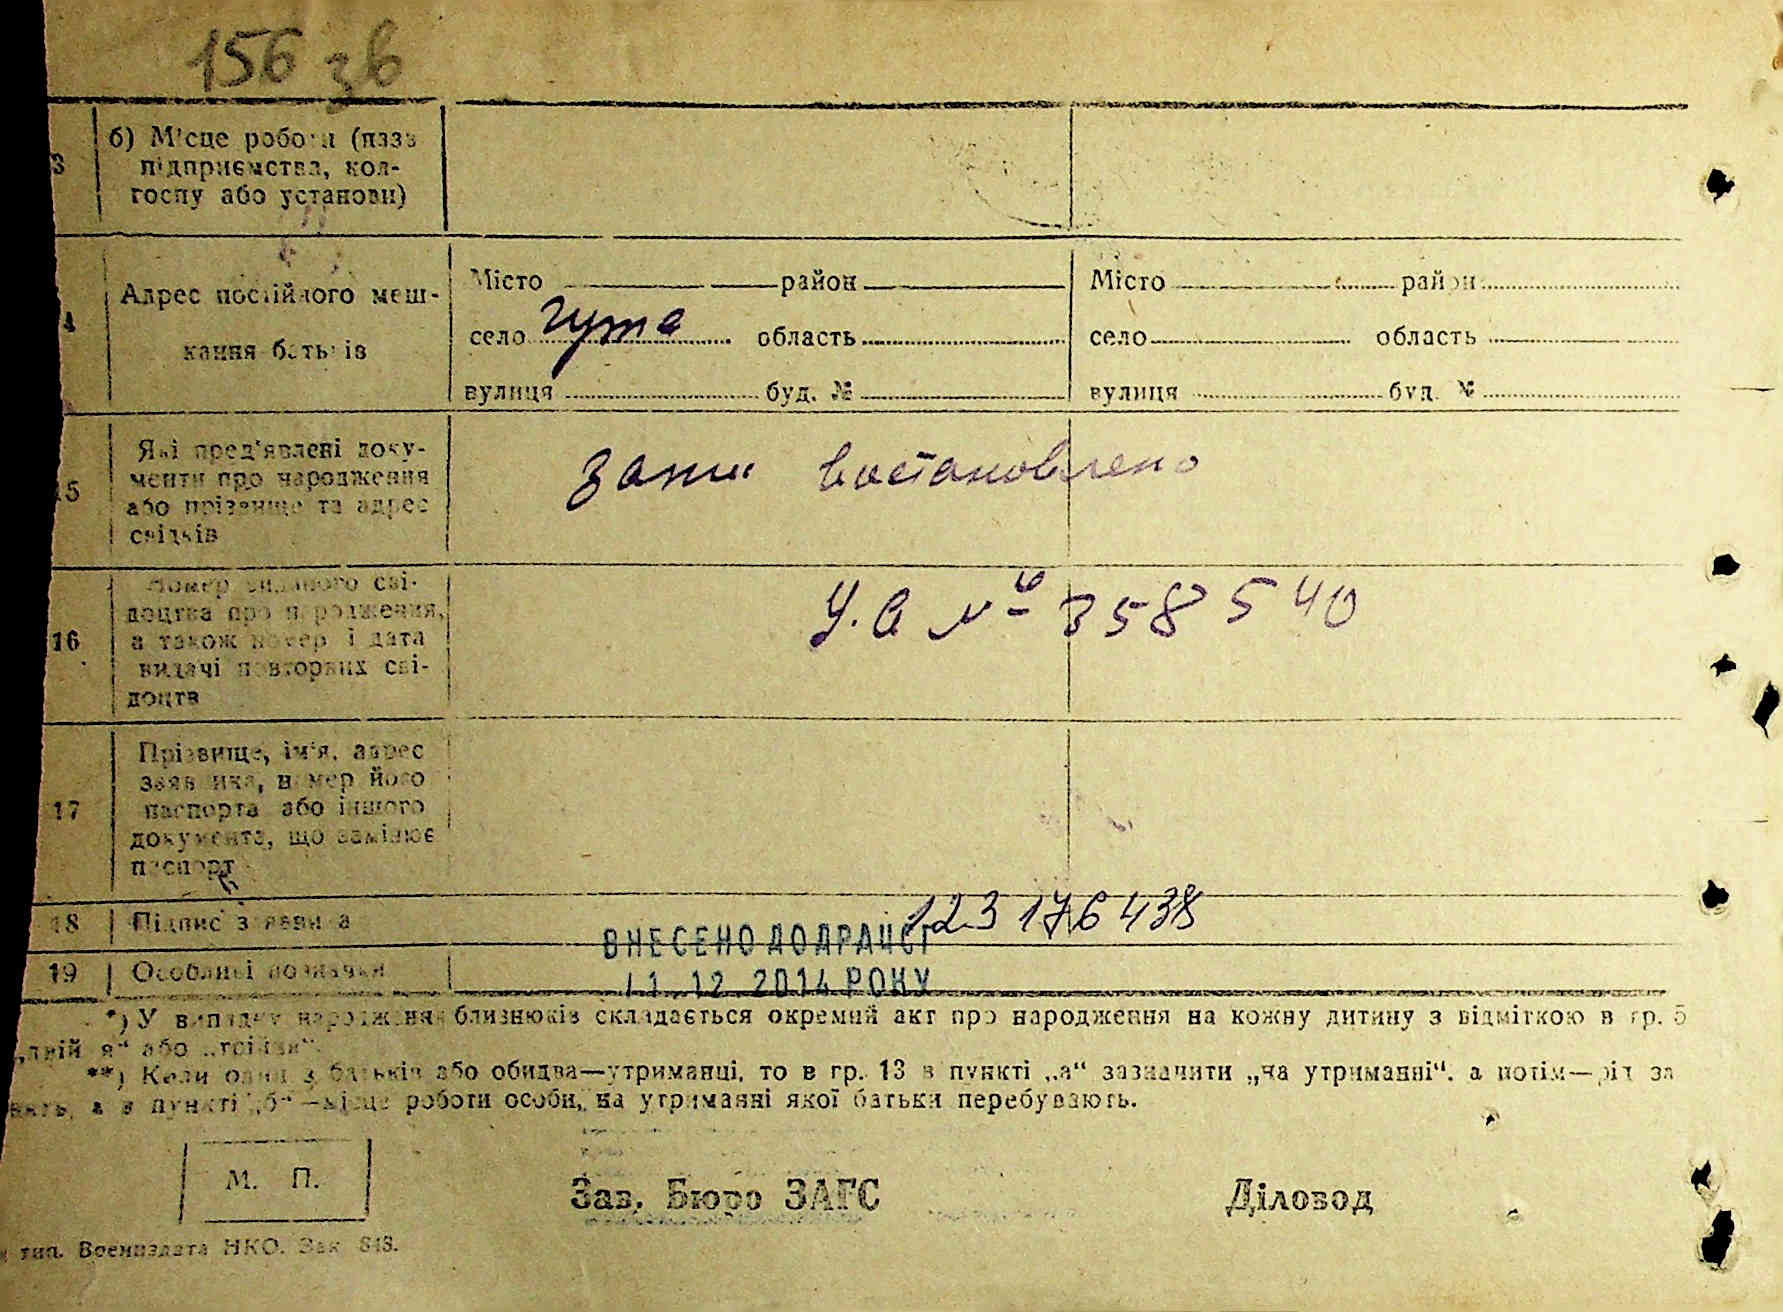 156 зв
3 б) Місце роботи (назв
підприємства, кол-
госпу або установи)
4 Адрес постійного меш-
кання батьків
Місто район
село Гута область
вулиця буд. №
Місто район
село область
вулиця буд. №
15 Які пред'явлені доку-
менти про народження
або прізвище та адрес
свідків
запис востановлено
16 Номер виданого сві-
доцтва про народження,
а також номер і дата
видачі повторних сві-
доцтв
У.А № 358540
17 Прізвище, ім'я, адрес
заявника, номер його
паспорта або іншого
документа, що замінює
паспорт
18 Підпис заявника
123176438
ВНЕСЕНО ДО ДРАЦСГ
19 Особливі позначки
11.12.2014 РОКУ
*) У випадку народження близнюків складається окремий акт про народження на кожну дитину з відміткою в гр. 5
„двійня“ або „трійня“.
**) Коли один з батьків або обидва—утриманці, то в гр. 13 в пункті „а“ зазначити „на утриманні“, а потім—рід за
а в пункті „б“—місце роботи особи, на утриманні якої батьки перебувають.
М. П.
Зав. Бюро ЗАГС Діловод
тип. Воениздата НКО. Зак 843.